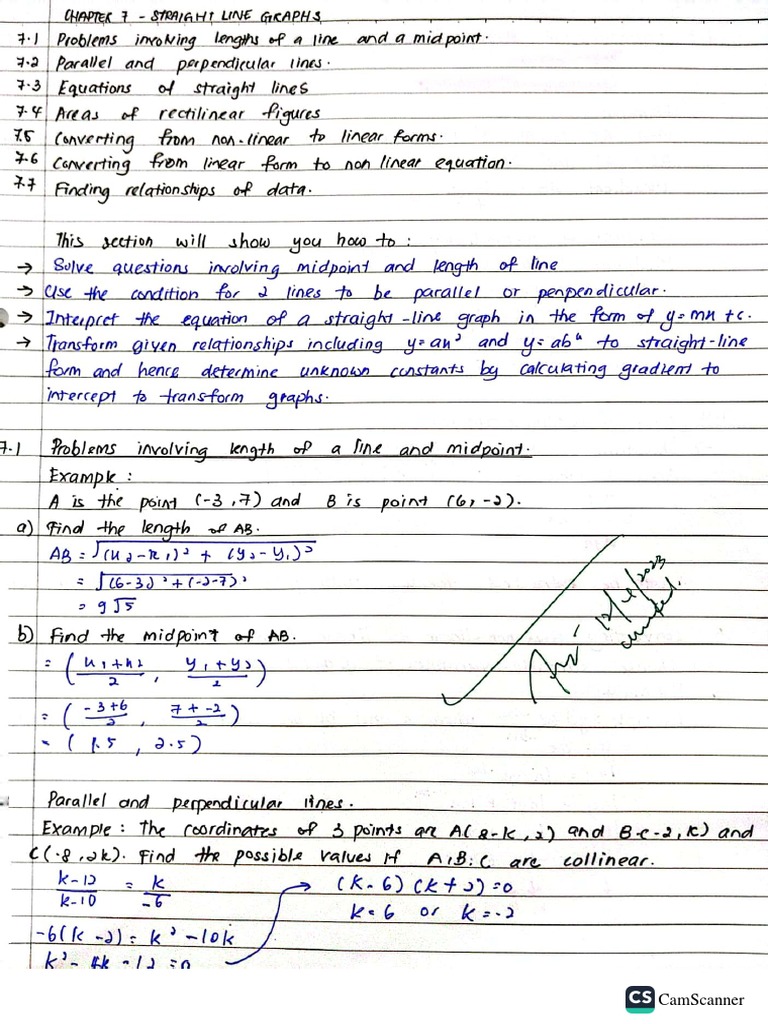 CHAPTER 7 - STRAIGHT LINE GRAPHS
7.1 Problems involving lengths of a line and a midpoint.
7.2 Parallel and perpendicular lines.
7.3 Equations of straight lines
7.4 Areas of rectilinear figures
7.5 Converting from non-linear to linear forms.
7.6 Converting from linear form to non linear equation.
7.7 Finding relationships of data.
This section will show you how to:
→ Solve questions involving midpoint and length of line
→ Use the condition for 2 lines to be parallel or penpendicular.
→ Interpret the equation of a straight-line graph in the form of y=mx+c.
→ Transform given relationships including y=ax² and y=abˣ to straight-line
form and hence determine unknown constants by calculating gradient to
intercept to transform graphs.
7.1 Problems involving length of a line and midpoint.
Example:
A is the point (-3,7) and B is point (6,-2).
a) Find the length of AB.
AB = √(x₂-x₁)² + (y₂-y₁)²
= √(6-3)²+(-2-7)²
= 9√5
b) Find the midpoint of AB.
= (x₁+x₂/2, y₁+y₂/2)
= (-3+6/2, 7+-2/2)
= (1.5, 2.5)
Parallel and perpendicular lines.
Example: The coordinates of 3 points are A(8-k,2) and B(-2,k) and
C(-8,2k). Find the possible values if A,B,C are collinear.
k-12/k-10 = k/-6
(k-6)(k+2)=0
k=6 or k=-2
-6(k-2)=k²-10k
k²-4k-12=0
CS CamScanner